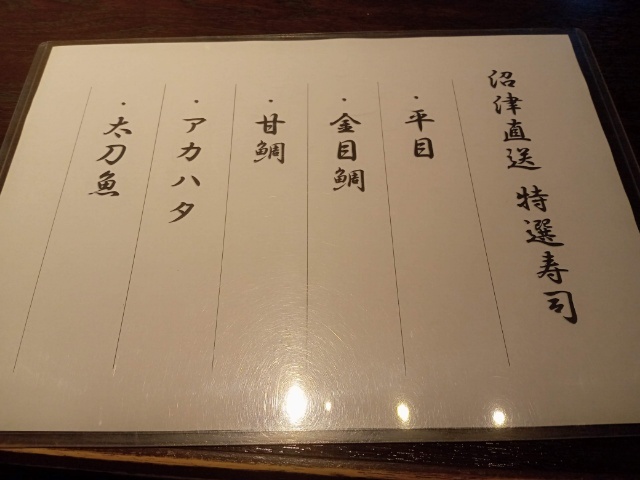 沼津直送 特選寿司
・平目
・金目鯛
・甘鯛
・アカハタ
・太刀魚